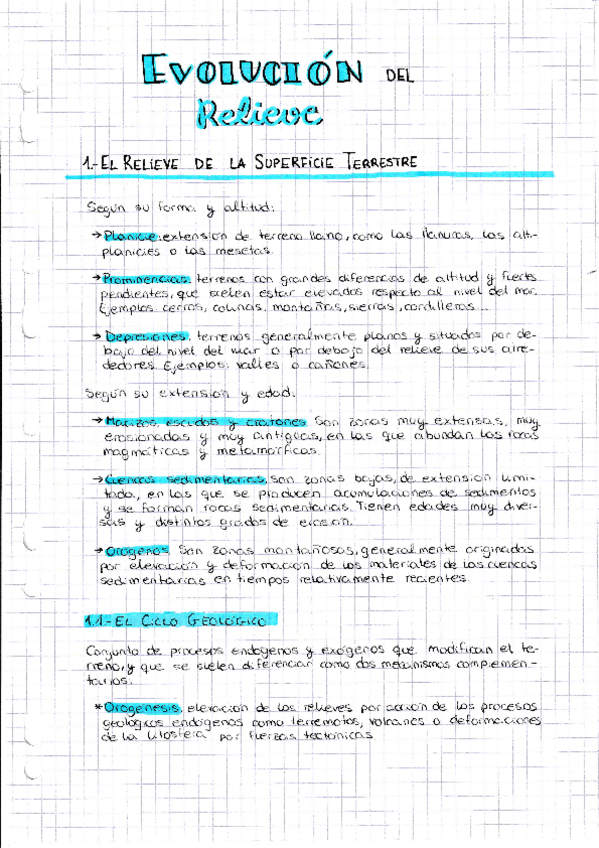 EVOLUCIÓN DEL
Relieve
1.-EL RELIEVE DE LA SUPERFICIE TERRESTRE
Según su forma y altitud:
→Planicie: extensión de terreno llano, como las llanuras, las alti-
planicies o las mesetas.
→Prominencias: terrenos con grandes diferencias de altitud y fuerte
pendientes, que suelen estar elevados respecto al nivel del mar.
Ejemplos: cerros, colinas, montañas, sierras, cordilleras...
→Depresiones: terrenos generalmente planos y situados por de-
bajo del nivel del mar o por debajo del relieve de sus alre-
dedores. Ejemplos: valles o cañones.
Según su extensión y edad:
→Macizos, escudos y cratones. Son zonas muy extensas, muy
erosionadas y muy antiguas, en las que abundan las rocas
magmáticas y metamórficas.
→Cuencas sedimentarias, son zonas bajas, de extensión limi-
tada, en las que se producen acumulaciones de sedimentos
y se forman rocas sedimentarias. Tienen edades muy diver-
sas y distintos grados de erosión.
→Orógenos. Son zonas montañosas, generalmente originadas
por elevación y deformación de los materiales de las cuencas
sedimentarias en tiempos relativamente recientes.
1.1-EL CICLO GEOLÓGICO
Conjunto de procesos endógenos y exógenos que modifican el te-
rreno, y que se suelen diferenciar como dos mecanismos complemen-
tarios:
*Orogénesis, elevación de los relieves por acción de los procesos
geológicos endógenos como terremotos, volcanes o deformaciones
de la litosfera por fuerzas tectónicas